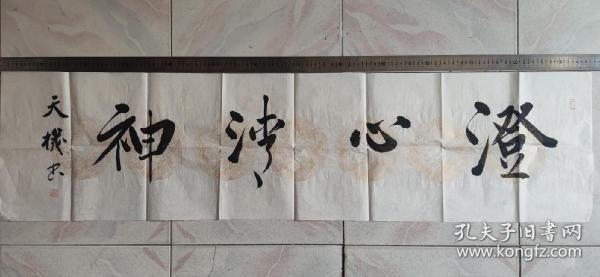 澄心清神
天機书
孔夫子旧书网
www.kongfz.com